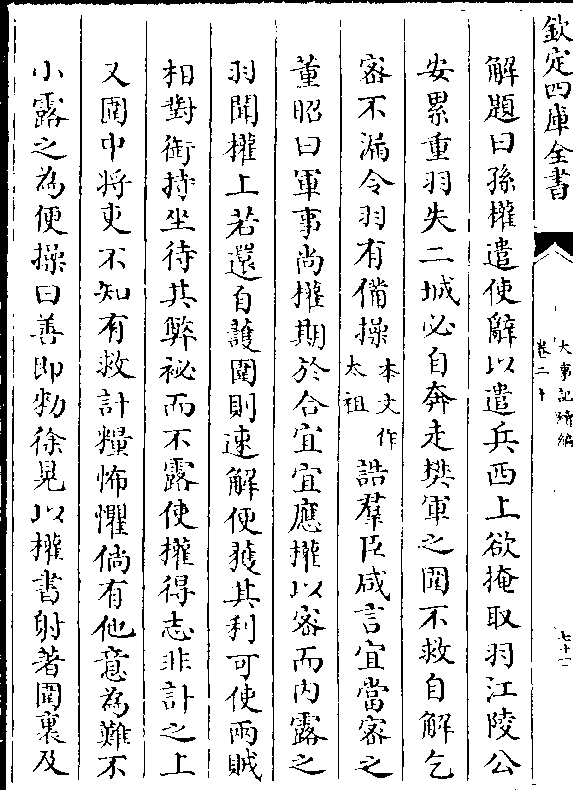 欽定四庫全書
大事記續編
卷二十
七十一
解題曰孫權遣使辭以遣兵西上欲掩取羽江陵公
安累重羽失二城必自奔走樊軍之圍不救自解乞
密不漏令羽有備操本文作太祖詰羣臣咸言宜當密之
董昭曰軍事尚權期於合宜宜應權以密而内露之
羽聞權上若還自護圍則速解便獲其利可使兩賊
相對銜持坐待其弊祕而不露使權得志非計之上
又圍中將吏不知有救計糧怖懼倘有他意為難不
小露之為便操曰善即勑徐晃以權書射著圍裏及